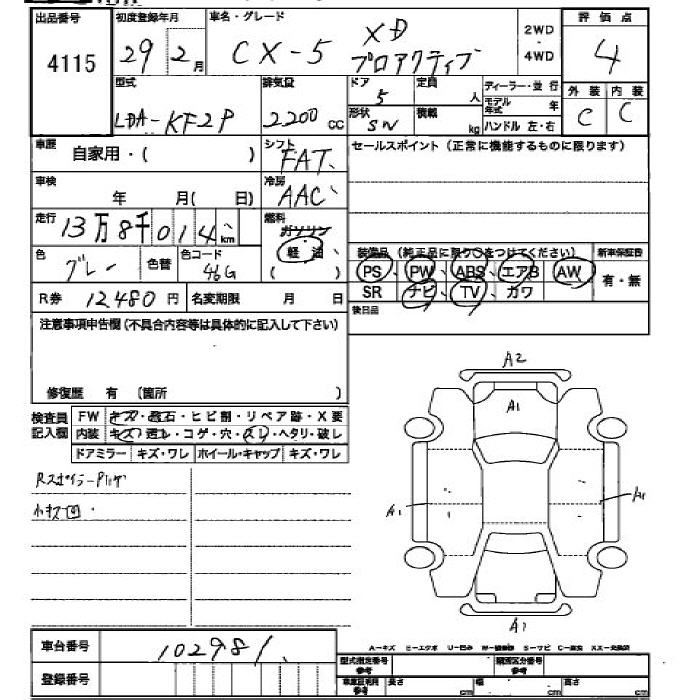 出品番号 初度登録年月 車名・グレード 2WD 評価点
4115 29 2月 CX-5 XD プロアクティブ ・ 4WD 4
型式 排気量 ドア 定員 ディーラー・並行 外装 内装
LDA-KF2P 2200cc 5 人 モデル年式 年 C C
形状 積載
SW kg ハンドル 左・右
車歴 自家用・( ) シフト FAT セールスポイント(正常に機能するものに限ります)
車検 年 月( 日) 冷房 AAC
走行 13万8千014km 燃料 ガソリン
色 グレー 色替 色コード 46G 軽油 ( ) 装備品(純正品に限り○をつけてください) 新車保証書
PS PW ABS エアB AW 有・無
R券 12480円 名変期限 月 日 SR ナビ TV ガワ
後日品
注意事項申告欄(不具合内容等は具体的に記入して下さい)
修復歴 有 (箇所 )
検査員 FW キズ・飛石・ヒビ割・リペア跡・X要
記入欄 内装 キズ・コゲ・穴・スレ・ヘタリ・破レ
ドアミラー キズ・ワレ ホイール・キャップ キズ・ワレ
Rスポイラー
小キズ凹
A2
A1
A1 A1
A1
車台番号 102981
A−キズ E−エクボ U−凹み
登録番号 型式指定番号 参考 類別区分番号 参考
長さ cm 幅 cm 高さ cm